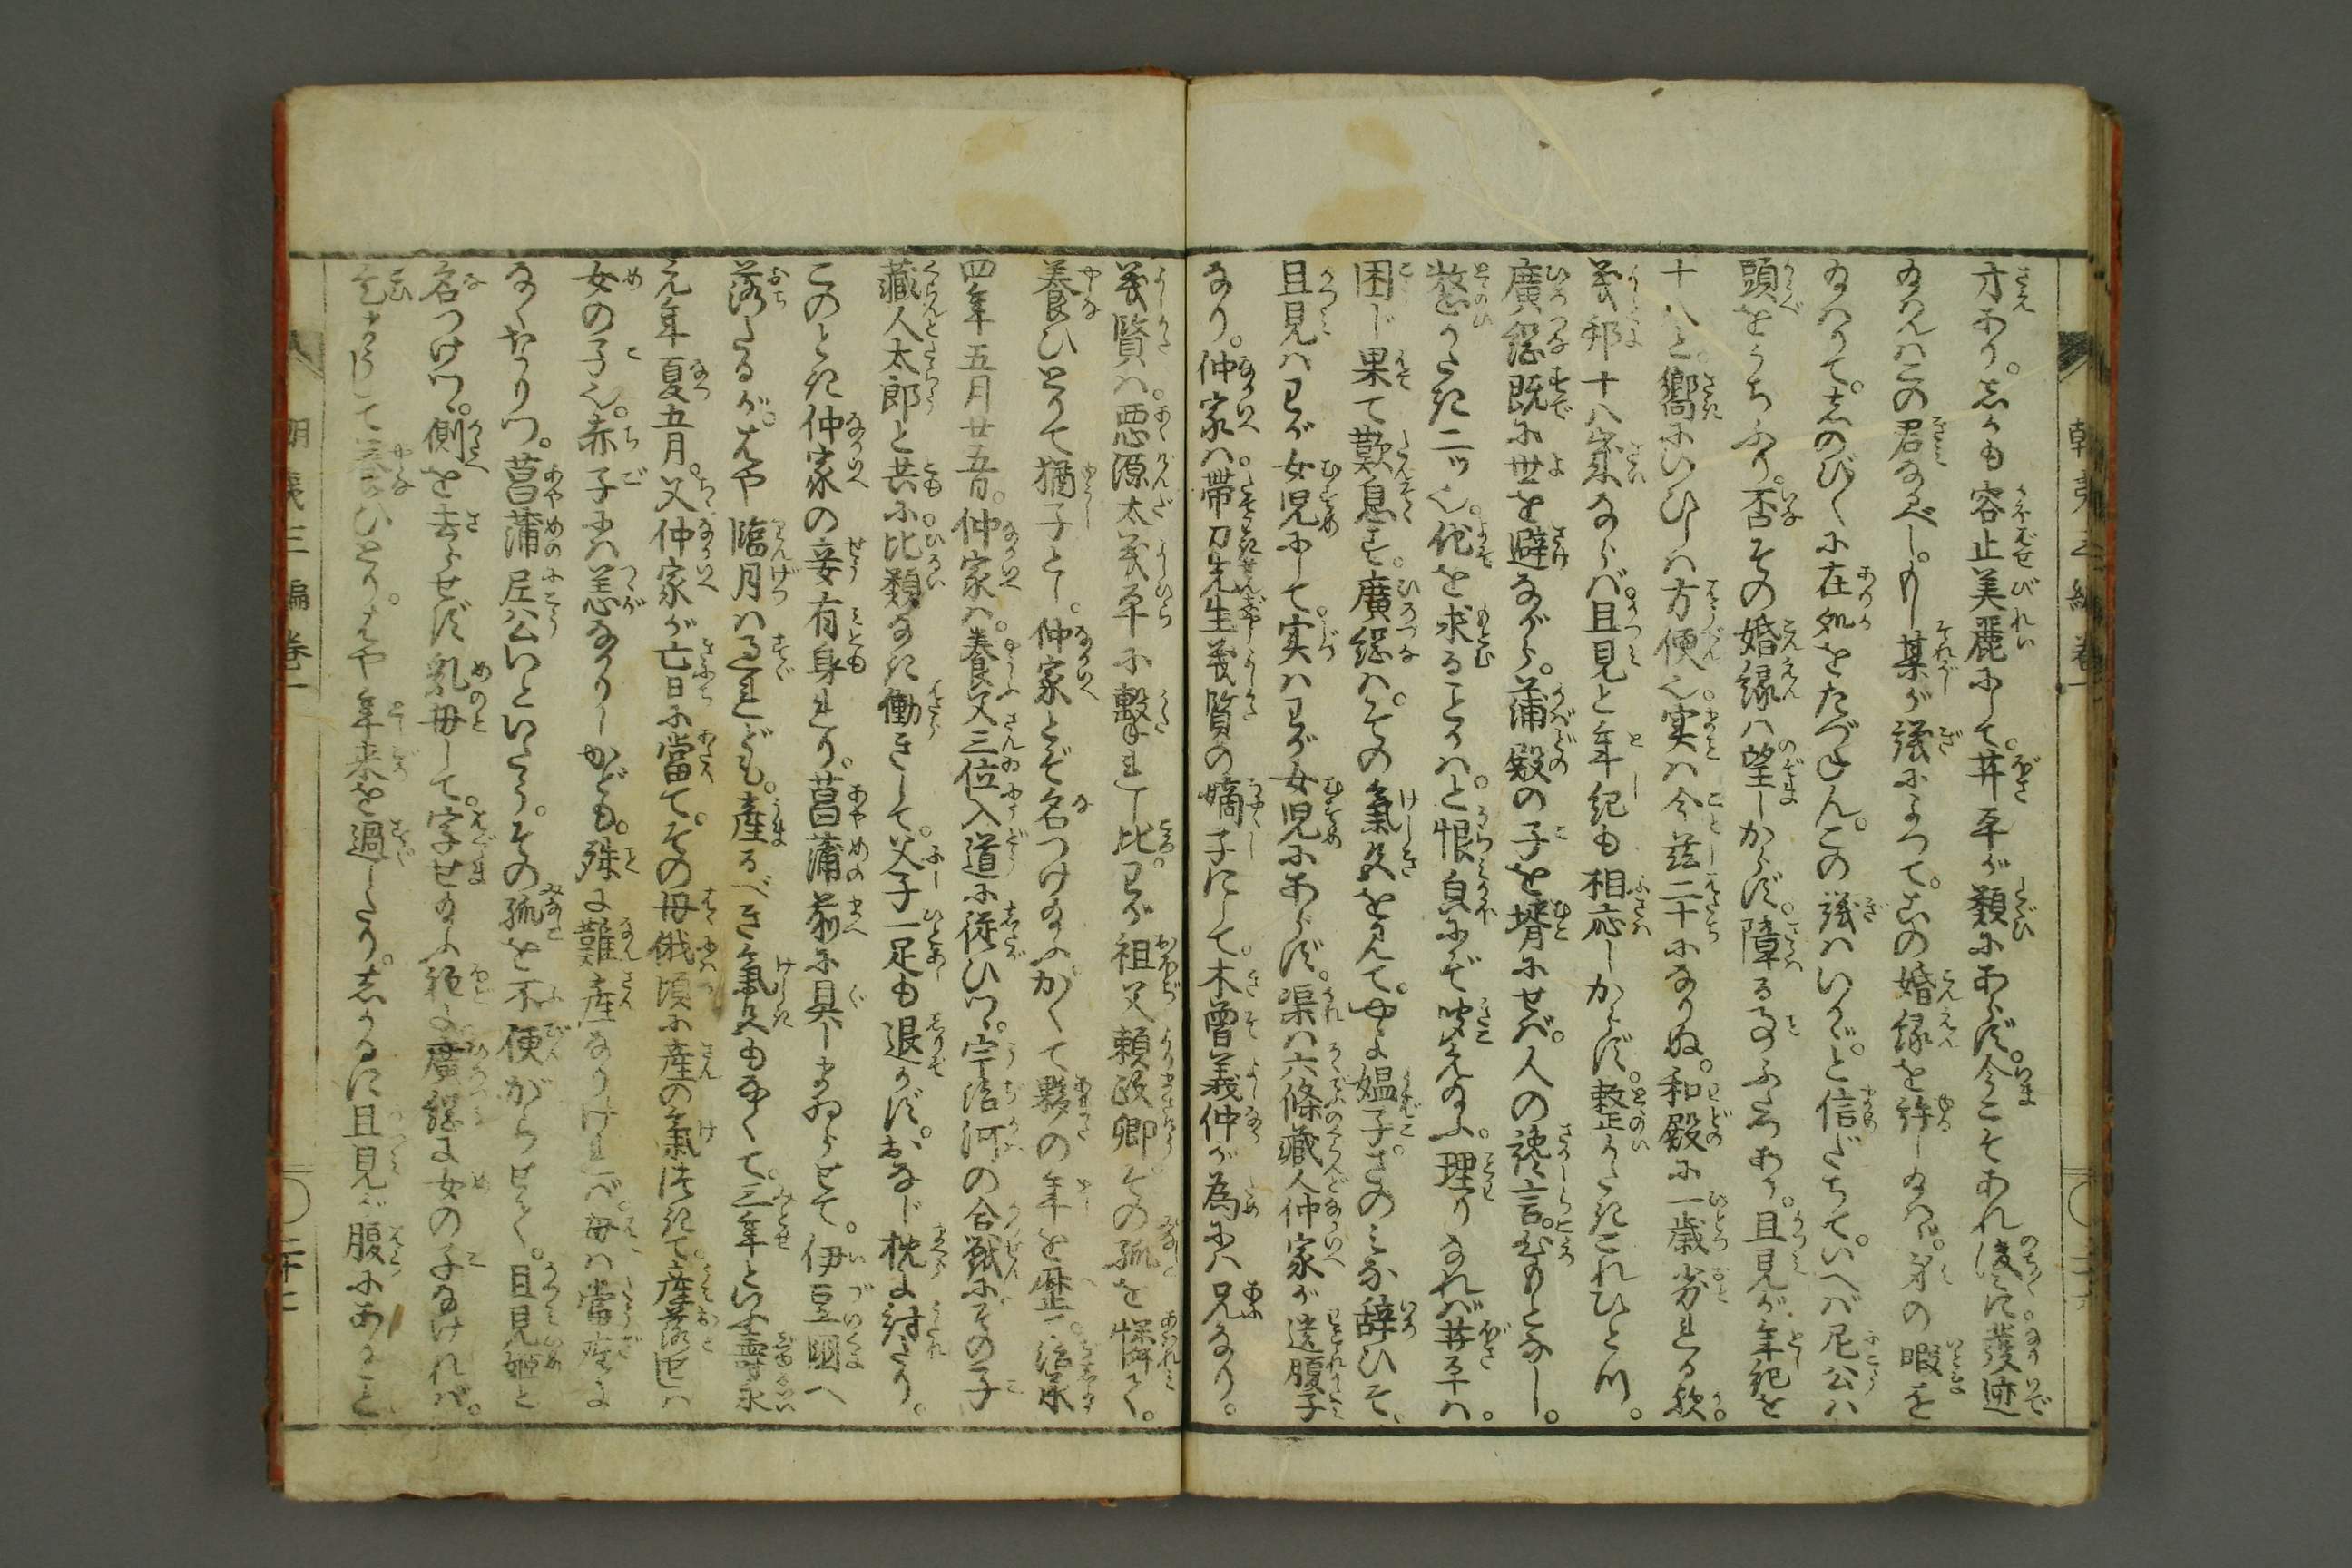 才あり。しかも容止美麗にして。井平が類にあらず。今こそあれ後々に。發迹
給はんはこの君なるべし。もし某が議によつて。この婚縁を許し給はゞ。身の暇を
給はりて。しのび〳〵に在処をたづねん。この議はいかゞと信だちて。いへば尼公は
頭をうちふり。否その婚縁は望しからず。障る事ふたつあり。且見が年紀を
十八と。嚮にいひしは方便也。実は今茲二十になりぬ。和殿に一歳劣れる歟。
義邦十八歳ならば。且見と年紀も相応しからず。整ひがたきこれひとつ。
廣綱既に世を避ながら。蒲殿の子を壻にせば。人の讒言やむときなし。
整ひがたき二ッ也。他を求ることかは。と恨貌にぞ聞え給ふ。理りなれば井平は。
困じ果て歎息す。廣綱は。その氣色を見て。やよ媼子。さのみな辞ひそ。
且見はわが女児にして。実はわが女児にあらず。渠は六條藏人仲家が遺腹子
なり。仲家は。帶刀先生義賢の嫡子にして。木曾義仲が為には兄なり。
義賢は。悪源太義平に撃れし比。わが祖父頼政卿。その孤を憐て。
養ひとりて猶子とし。仲家とぞ名つけ給ふ。かくて夥の年を歴て。治承
四年五月廿五日。仲家は。養父三位入道に従ひつ。宇治河の合戦にその子
藏人太郎と共に。比類なき働きして。父子一足も退かず。おなじ枕に討れたり。
このとき仲家の妾有身たり。菖蒲前に具しまゐらせて。伊豆國へ
落たるが。はや臨月は過れども。産るべき氣色もなくて。三年といふ壽永
元年夏五月。父仲家が亡日に當て。その母俄頃に産の氣つきて。産落せしは
女の子也。赤子には恙なかりしかども。殊に難産なりければ。母は當座に
なくなりつ。菖蒲尼公いといたう。その孤を不便がらせて。且見姫と
名つけつ。側を去らせず乳母して。字せ給ふ程に。廣綱に女の子なければ。
乞まうして養ひとり。はや年来を過したり。しかるに且見が腹にあること